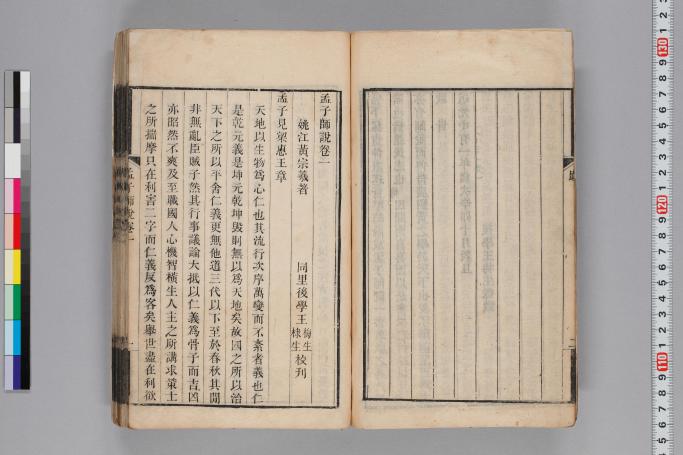 孟子師說卷一
姚江黃宗羲著　同里後學王梅生棣生校刋
孟子見梁惠王章
天地以生物爲心仁也其流行次序萬變而不紊者義也仁
是乾元義是坤元乾坤毀則無以爲天地矣故國之所以治
天下之所以平舍仁義更無他道三代以下至於春秋其閒
非無亂臣賊子然其行事議論大抵以仁義爲骨子而吉凶
亦昭然不爽及至戰國人心機智橫生人主之所講求策士
之所揣摩只在利害二字而仁義反爲客矣舉世盡在利欲
孟子師說卷一
一
110
120
130